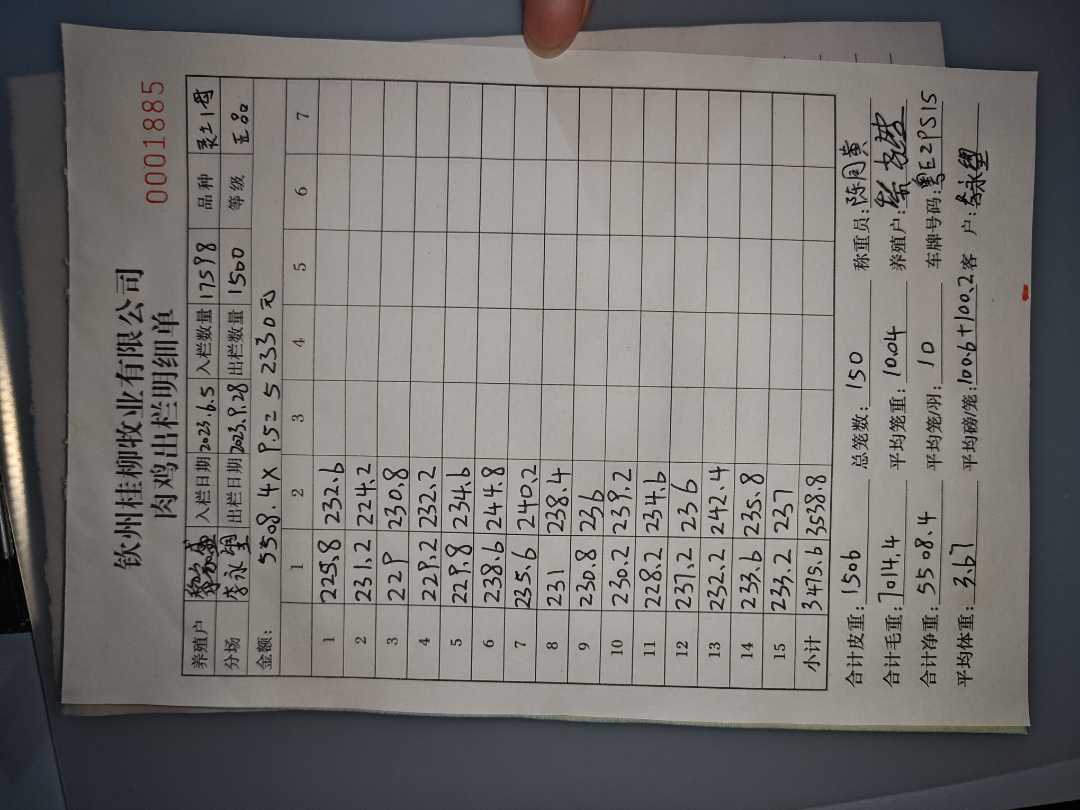 0001885
钦州桂柳牧业有限公司
肉鸡出栏明细单
养殖户 入栏日期 2023.6.5 入栏数量 17598 品种 灵土1号
分场 李永望 出栏日期 2023.9.28 出栏数量 1500 等级 正品
金额: 5508.4×9.5=52330元
1 2 3 4 5 6 7
1 225.8 232.6
2 231.2 224.2
3 229 230.8
4 229.2 232.2
5 229.8 234.6
6 238.6 244.8
7 235.6 240.2
8 231 238.4
9 230.8 236
10 230.2 239.2
11 228.2 234.6
12 237.2 236
13 232.2 242.4
14 233.6 235.8
15 233.2 237
小计 3475.6 3538.8
合计皮重: 1506 总笼数: 150 称重员: 陈周黄
合计毛重: 7014.4 平均笼重: 10.04 养殖户:
合计净重: 5508.4 平均笼/羽: 10 车牌号码: 粤E2PS15
平均体重: 3.67 平均磅/笼: 100.6+100.2 客 户: 李永望